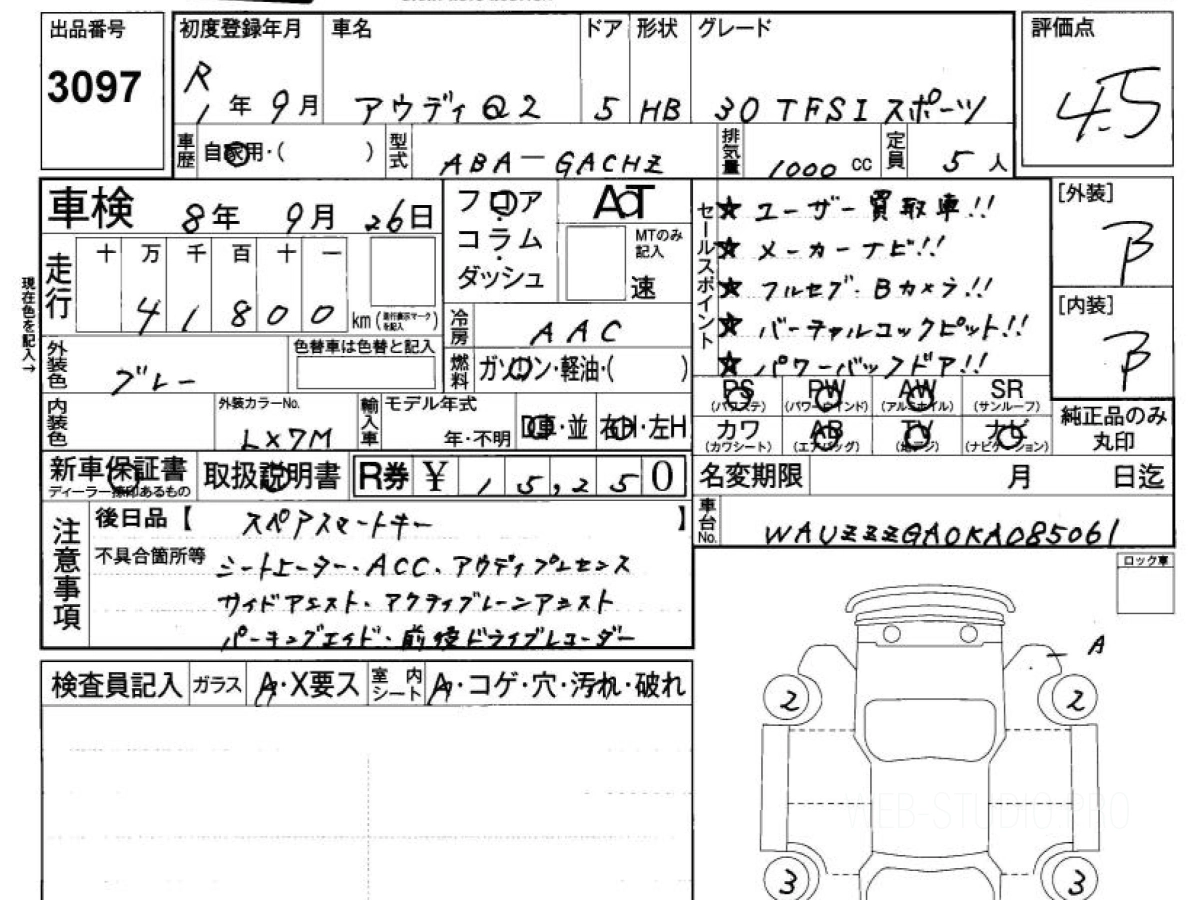 出品番号 初度登録年月 車名 ドア 形状 グレード 評価点
3097 R 1年 9月 アウディ Q2 5 HB 30 TFSI スポーツ 4.5
車歴 自家用・( ) 型式 ABA-GACHZ 排気量 1000 cc 定員 5人
車検 8年 9月 26日 フロア AT
コラム MTのみ記入
ダッシュ 速
セールスポイント
★ ユーザー買取車!!
★ メーカーナビ!!
★ フルセグ・Bカメラ!!
★ バーチャルコックピット!!
★ パワーバックドア!!
[外装] B
[内装] B
現在色を記入→
走行 十 万 千 百 十 一
4 1 8 0 0 km (走行表示マークを記入)
冷房 AAC
外装色 ブルー 色替車は色替と記入 燃料 ガソリン・軽油・( )
内装色 外装カラーNo. LX7M 輸入車 モデル年式 年・不明 D車・並 右H・左H
PS (パワステ) PW (パワーウインド) AW (アルミホイル) SR (サンルーフ)
カワ (カワシート) AB (エアバッグ) TV (地デジ) ナビ (ナビゲーション)
純正品のみ丸印
新車保証書 ディーラー捺印あるもの 取扱説明書 R券 ¥ 1 5,2 5 0
名変期限 月 日迄
車台No. WAUZZZGA0KA085061
注意事項
後日品【 スペアスマートキー 】
不具合箇所等 シートヒーター・ACC・アウディプレセンス
サイドアシスト・アクティブレーンアシスト
パーキングエイド・前後ドライブレコーダー
ロック車
検査員記入 ガラス A・X要ス 室内シート A・コゲ・穴・汚れ・破れ
A
2 2
WEB-STUDIO.PRO
3 3